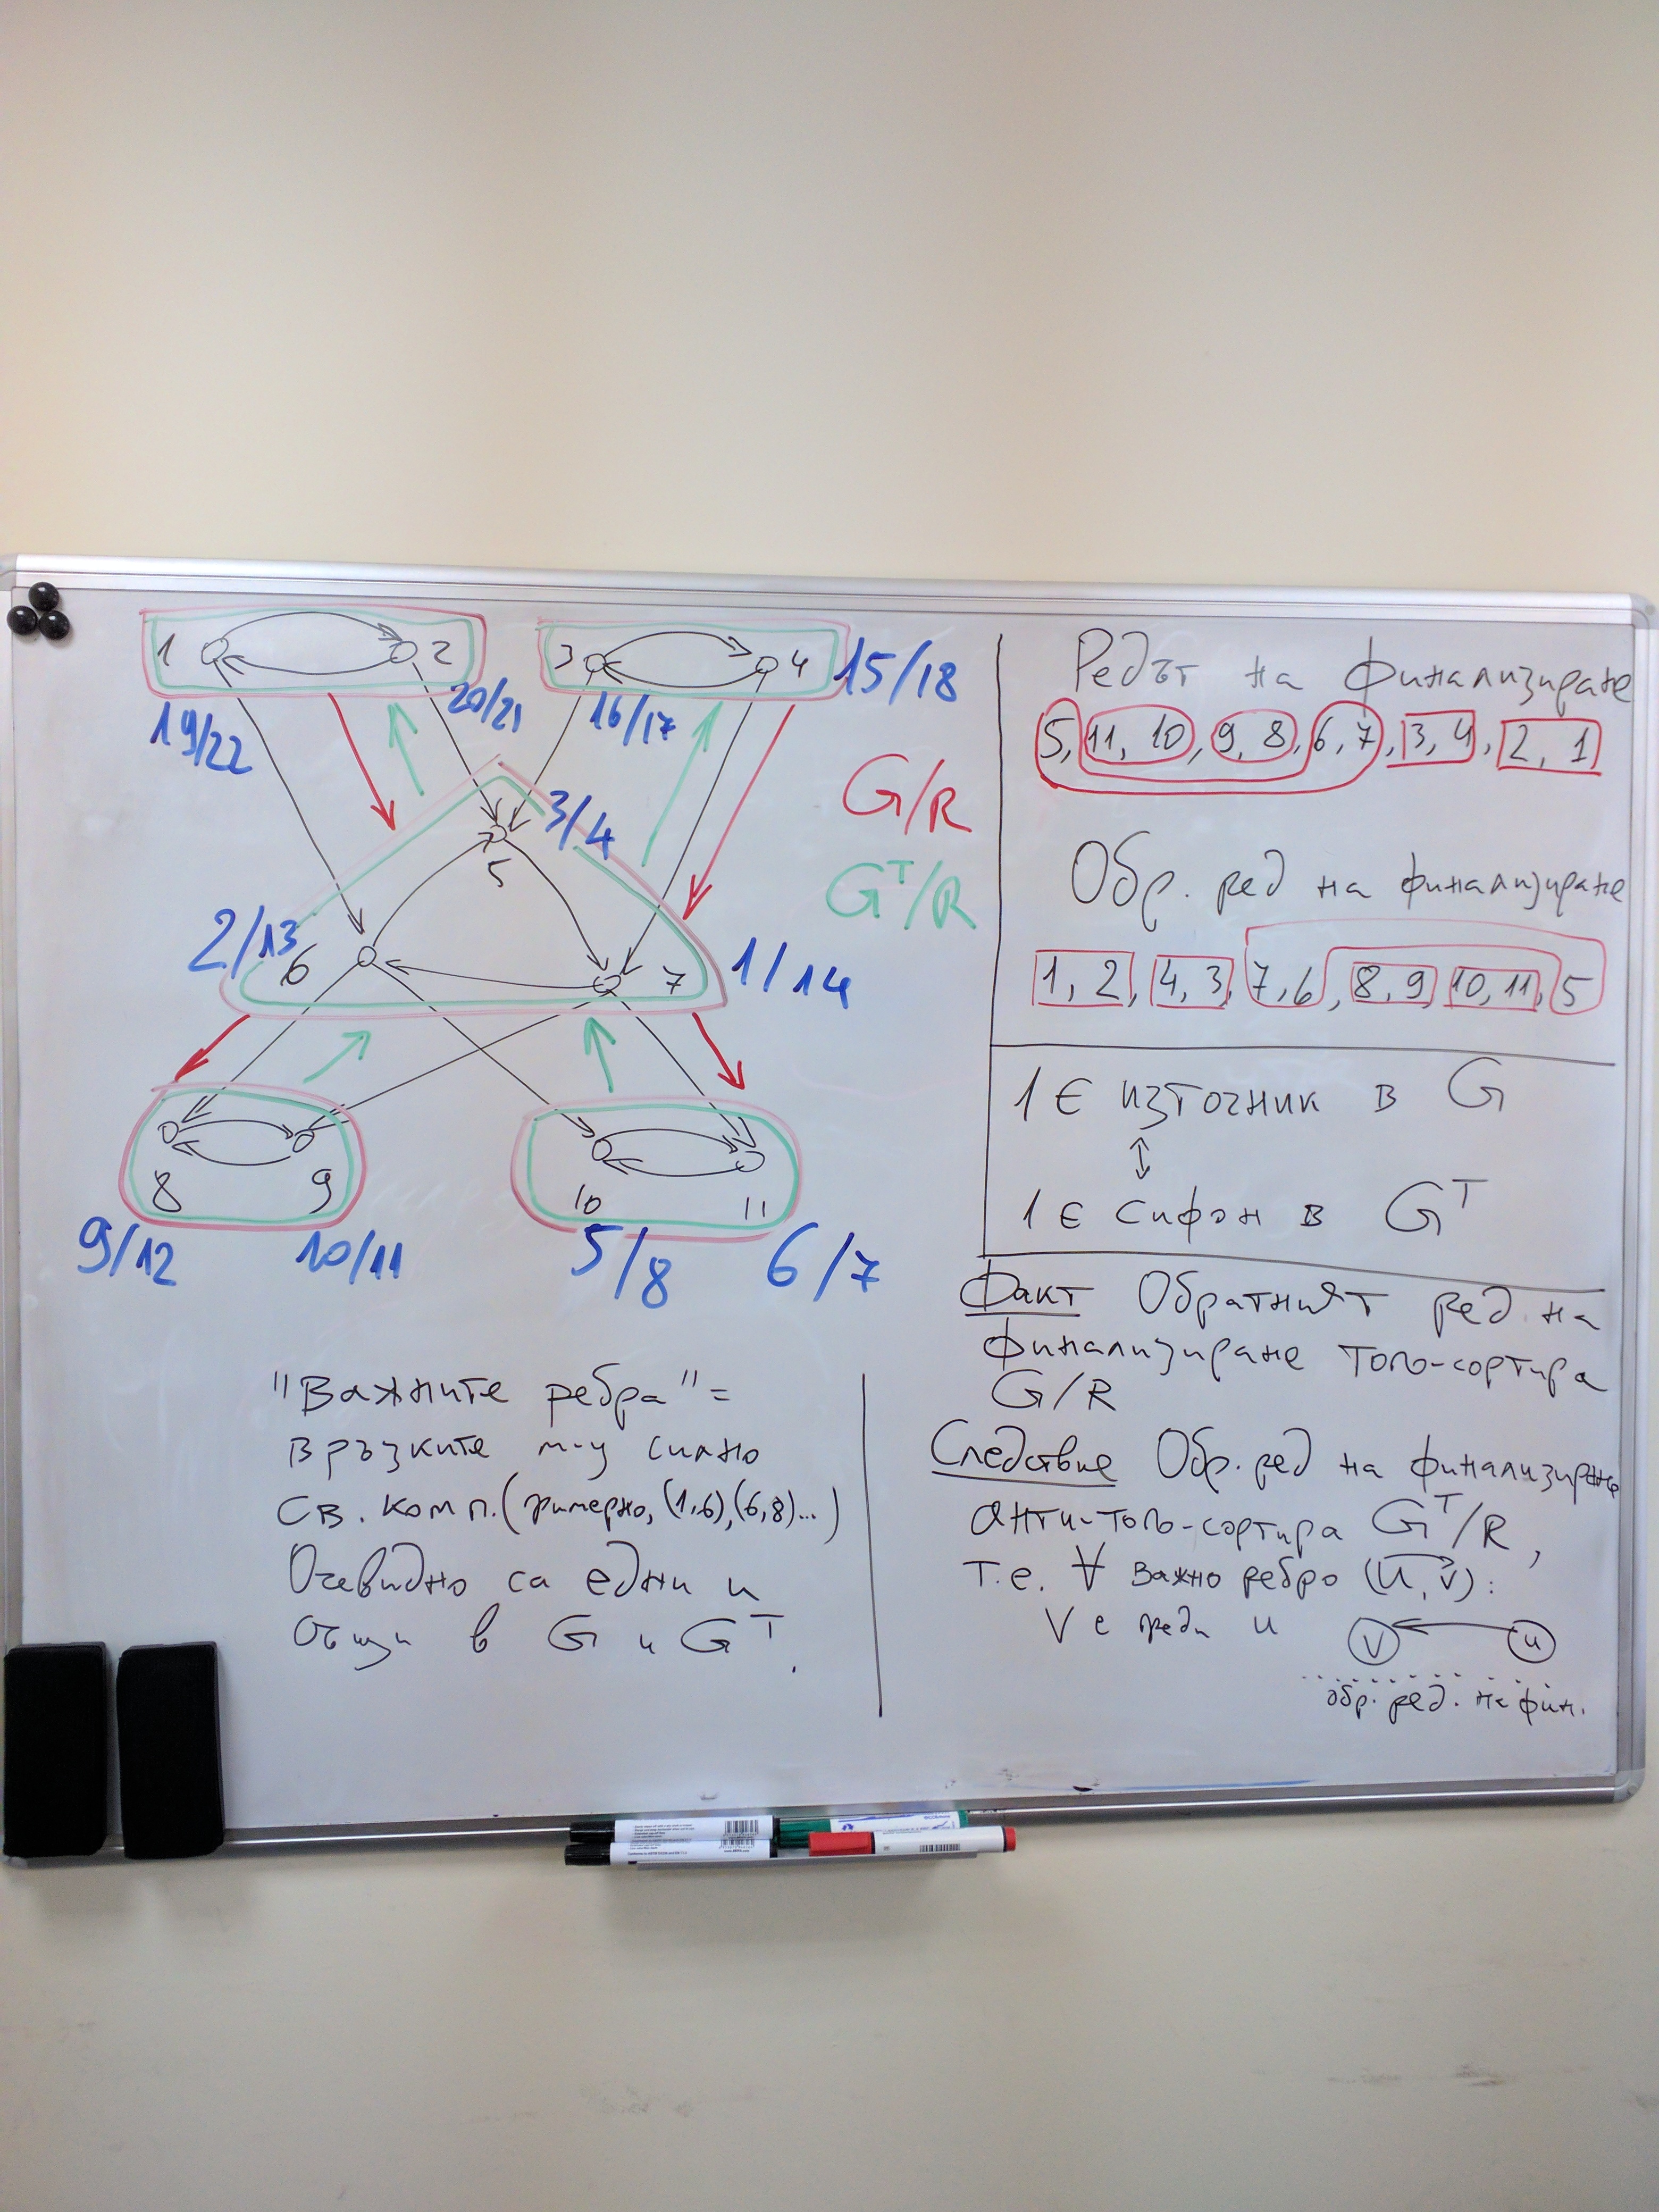 1
2
3
4
15/18
19/22
20/21
16/17
3/4
5
G/R
G^T/R
2/13
6
7
1/14
8
9
10
11
9/12
10/11
5/8
6/7
"Важните ребра" =
връзките м-у силно
св. комп. (примерно, (1,6), (6,8)...)
Очевидно са едни и
същи в G и G^T.
Редът на финализиране
5, 11, 10, 9, 8, 6, 7, 3, 4, 2, 1
Обр. ред на финализиране
1, 2, 4, 3, 7, 6, 8, 9 10, 11, 5
1 е източник в G
↕
1 е сифон в G^T
Факт Обратният ред на
финализиране топо-сортира
G/R
Следствие Обр. ред на финализиране
анти-топо-сортира G^T/R,
т.е. ∀ важно ребро (u, v):
v е преди u
v
u
обр. ред. на фин.